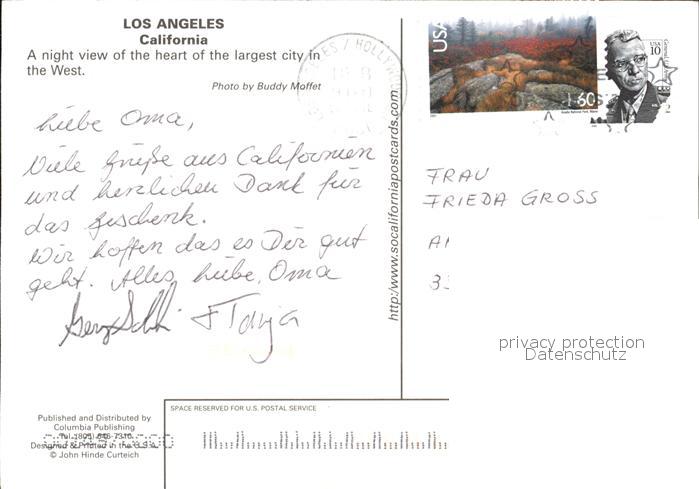 LOS ANGELES
California
A night view of the heart of the largest city in
the West.
Photo by Buddy Moffet
Liebe Oma,
Viele Grüße aus Californien
und herzlichen Dank für
das Geschenk.
Wir hoffen das es Dir gut
geht. Alles Liebe, Oma
+ Tanja
http://www.socaliforniapostcards.com
USA
60
USA
10
FRAU
FRIEDA GROSS
privacy protection
Datenschutz
Published and Distributed by
Columbia Publishing
Designed & Printed in the U.S.A.
© John Hinde Curteich
SPACE RESERVED FOR U.S. POSTAL SERVICE